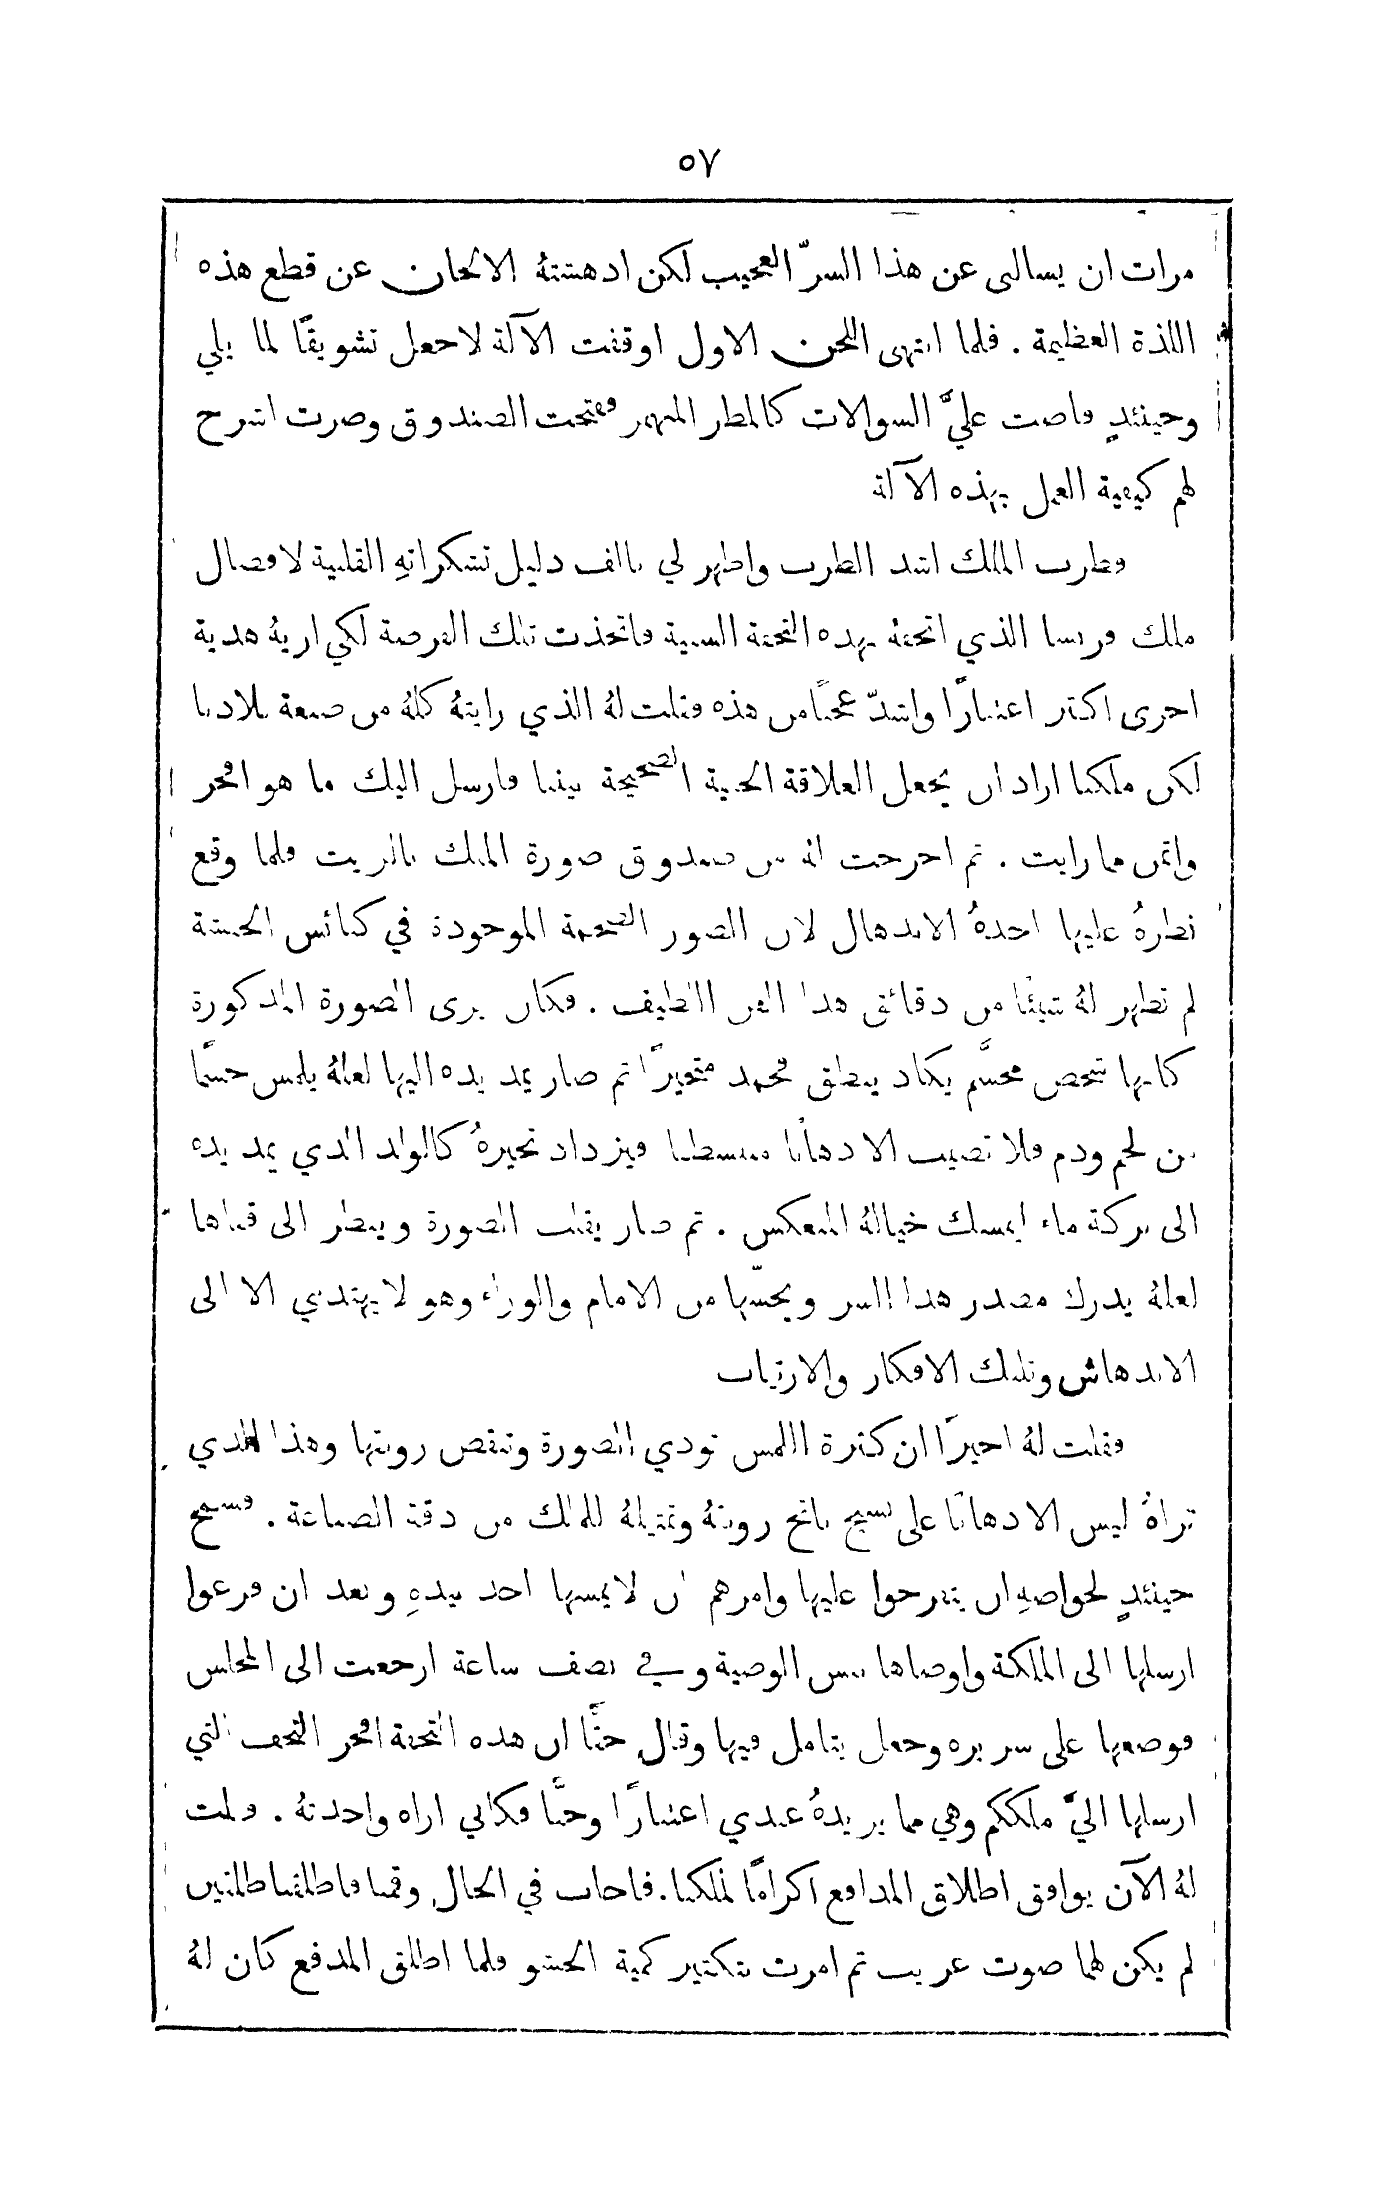 ٥٧
مرات ان يسالني عن هذا السرّ العجيب لكن ادهشتهُ الالحان عن قطع هذه
اللذة العظيمة . فلما انتهى اللحن الاول اوقفت الآلة لاجعل تشويقًا لما يلي
وحينئذٍ فاضت عليَّ السوالات كالمطر المنهمر ففتحت الصندوق وصرت اشرح
لهم كيفية العمل بهذه الآلة
فطرب الملك اشد الطرب واظهر لي بالف دليل تشكراتهِ القلبية لافضال
ملك فرنسا الذي اتحفهُ بهذه التحفة السنية فاتخذت تلك الفرصة لكي اريهُ هدية
اخرى اكثر اعتبارًا واشدّ عجبًا من هذه فقلت لهُ الذي رايتهُ كلهُ من صنعة بلادنا
لكن ملكنا اراد ان يجعل العلاقة الحبية الصحيحة بيننا فارسل اليك ما هو افخر
واثمن مما رايت . ثم اخرجت لهُ من صندوق صورة الملك بالزيت فلما وقع
نظرهُ عليها اخذهُ الاندهال لان الصور الضخمة الموجودة في كنائس الحبشة
لم تظهر لهُ شيئًا من دقائق هذا الفن اللطيف . فكان يرى الصورة المذكورة
كانها شخص مجسَّم يكاد ينطق فجمد متحيرًا ثم صار يمد يده اليها لعلهُ يلمس جسمًا
من لحم ودم فلا تصيب الا دهانًا منبسطا فيزداد تحيرهُ كالولد الذي يمد يده
الى بركة ماء ليمسك خيالهُ المنعكس . ثم صار يقلب الصورة وينظر الى قفاها
لعلهُ يدرك مصدر هذا السر ويجسّها من الامام والوراء وهو لا يهتدي الا الى
الاندهاش وتلبك الافكار والارتياب
فقلت لهُ اخيرًا ان كثرة اللمس توذي الصورة وتنقص رونقها وهذا الذي
تراهُ ليس الا دهانًا على نسيج ناتج رونقهُ وتمثيلهُ للملك من دقة الصناعة . فسمح
حينئذٍ لخواصهِ ان يتفرجوا عليها وامرهم ان لا يمسها احد بيدهِ وبعد ان فرغوا
ارسلها الى الملكة واوصاها بنفس الوصية وفي نصف ساعة ارجعت الى المجلس
فوضعها على سريره وجعل يتامل فيها وقال حقًّا ان هذه التحفة افخر التحف التي
ارسلها اليَّ ملككم وهي مما يزيدهُ عندي اعتبارًا وحبًّا فكاني اراه واحدثهُ . فقلت
لهُ الآن يوافق اطلاق المدافع اكرامًا لملكنا . فاجاب في الحال وقمنا فاطلقنا طلقتين
لم يكن لهما صوت غريب ثم امرت بتكثير كمية الحشو فلما اطلق المدفع كان لهُ